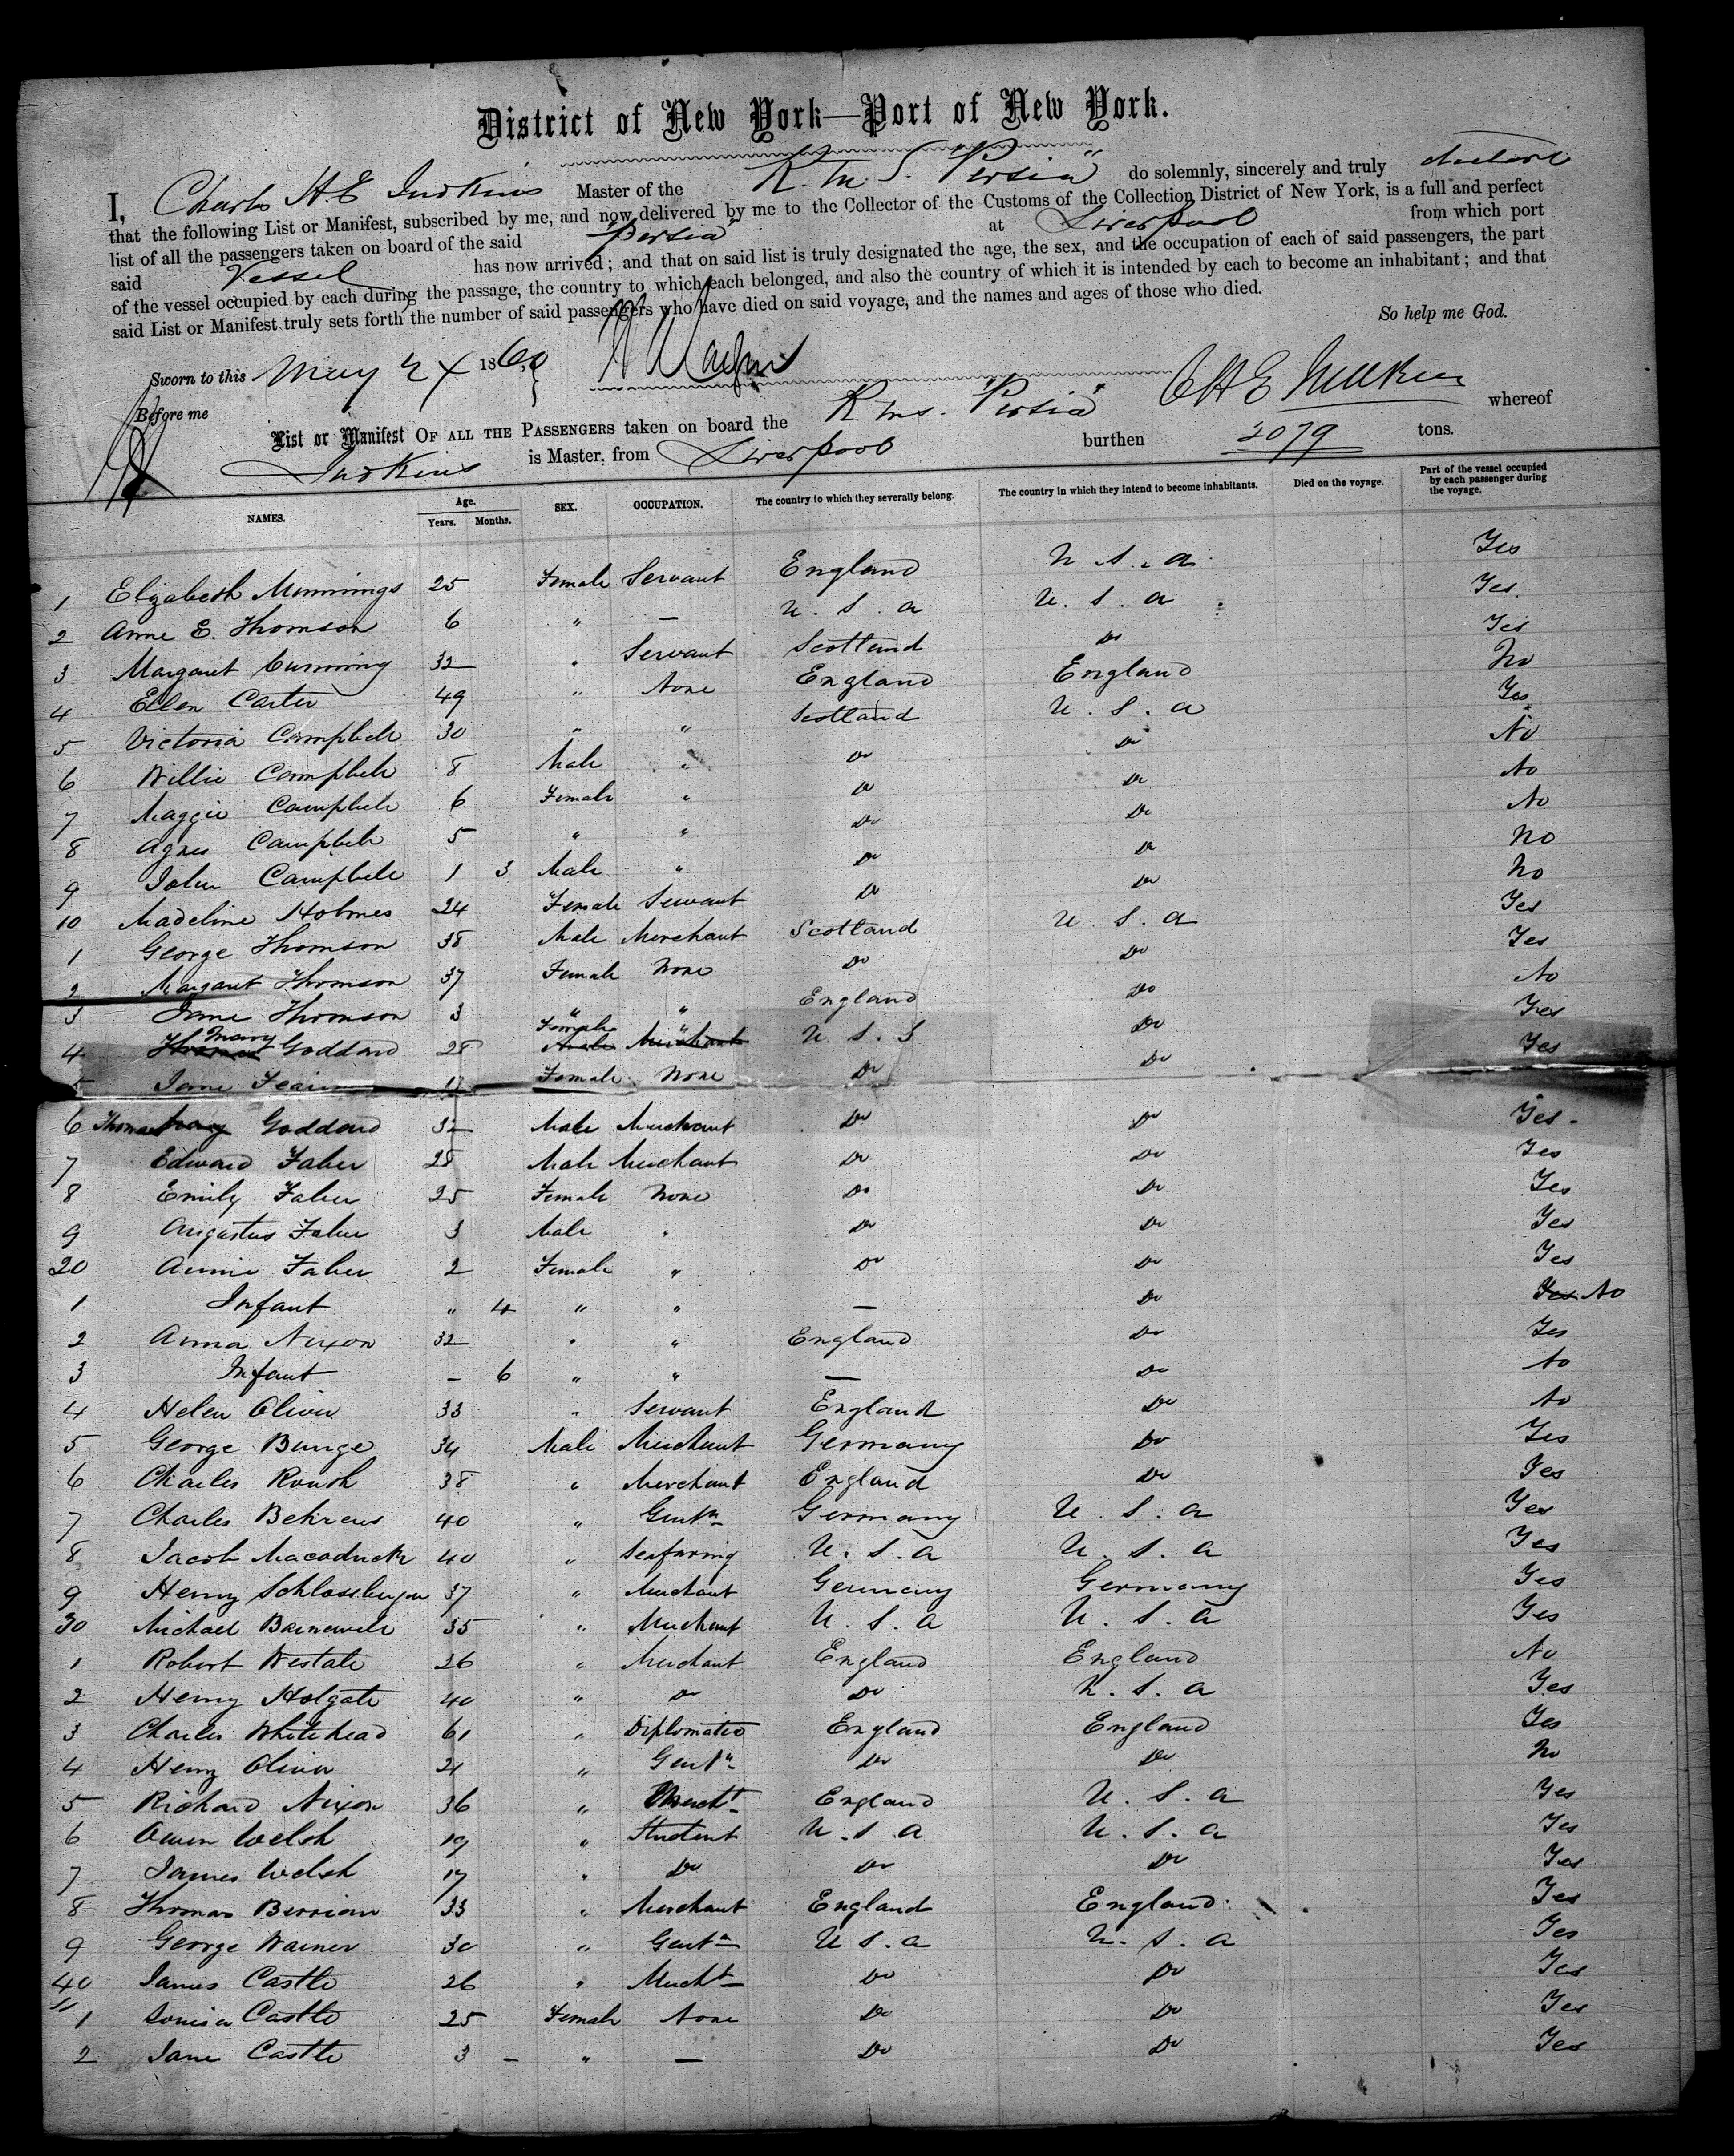 District of New York—Port of New York.
I, Charles H. E. Judkins Master of the R. M. S. "Persia" do solemnly, sincerely and truly declare
that the following List or Manifest, subscribed by me, and now delivered by me to the Collector of the Customs of the Collection District of New York, is a full and perfect
list of all the passengers taken on board of the said "Persia" at Liverpool from which port
said Vessel has now arrived; and that on said list is truly designated the age, the sex, and the occupation of each of said passengers, the part
of the vessel occupied by each during the passage, the country to which each belonged, and also the country of which it is intended by each to become an inhabitant; and that
said List or Manifest truly sets forth the number of said passengers who have died on said voyage, and the names and ages of those who died.
So help me God.
Sworn to this May 24 1860 C H E Judkins
Before me
List or Manifest OF ALL THE PASSENGERS taken on board the R. M. S. "Persia" whereof
Judkins is Master, from Liverpool burthen 2079 tons.
NAMES. Age. Years. Months. SEX. OCCUPATION. The country to which they severally belong. The country in which they intend to become inhabitants. Died on the voyage. Part of the vessel occupied by each passenger during the voyage.
1 Elizabeth Munnings 25 Female Servant England U. S. a Yes
2 Anne E. Thomson 6 " — U. S. a U. S. a Yes
3 Margaret Cumming 32 " Servant Scotland Do Yes
4 Ellen Carter 49 " None England England No
5 Victoria Campbell 30 " " Scotland U. S. a Yes
6 Willie Campbell 8 Male " Do Do No
7 Maggie Campbell 6 Female " Do Do No
8 Agnes Campbell 5 " " Do Do No
9 John Campbell 1 3 Male " Do Do No
10 Madeline Holmes 24 Female Servant Do Do No
1 George Thomson 38 Male Merchant Scotland U. S. a Yes
2 Margaret Thomson 37 Female None Do Do Yes
3 Jane Thomson 3 " " England Do No
4 Thomas Mary Goddard 28 Male Female Merchant " U. S. S Do Yes
5 Jane 17 Female None Do Do Yes
6 Thomas Mary Goddard 32 Male Merchant Do Do Yes
7 Edward Faber 28 Male Merchant Do Do Yes
8 Emily Faber 25 Female None Do Do Yes
9 Augustus Faber 3 Male " Do Do Yes
20 Annie Faber 2 Female " Do Do Yes
1 Infant " 4 " " — Do Yes No
2 Anna Nixon 32 " " England Do Yes
3 Infant — 6 " " — Do No
4 Helen Oliver 33 " Servant England Do No
5 George Bunge 34 Male Merchant Germany Do Yes
6 Charles 38 " Merchant England Do Yes
7 Charles Behrens 40 " Gentn Germany U. S. a Yes
8 Jacob 40 " Seafaring U. S. a U. S. a Yes
9 Henry Schlossberger 37 " Merchant Germany Germany Yes
30 Michael Barnewell 35 " Merchant U. S. a U. S. a Yes
1 Robert Westate 26 " Merchant England England No
2 Henry Holgate 40 " Do Do U. S. a Yes
3 Charles Whitehead 61 " Diplomatic England England Yes
4 Henry Oliver 21 " Gentn Do Do No
5 Richard Nixon 36 " Mercht England U. S. a Yes
6 Owen Welsh 19 " Student U. S. a U. S. a Yes
7 James Welsh 17 " Do Do Do Yes
8 Thomas Berrian 33 " Merchant England England Yes
9 George Warner 30 " Gentn U S. a U. S. a Yes
40 James Castle 26 " Mercht Do Do Yes
1 Louisa Castle 25 Female None Do Do Yes
2 Jane Castle 3 — " — Do Do Yes